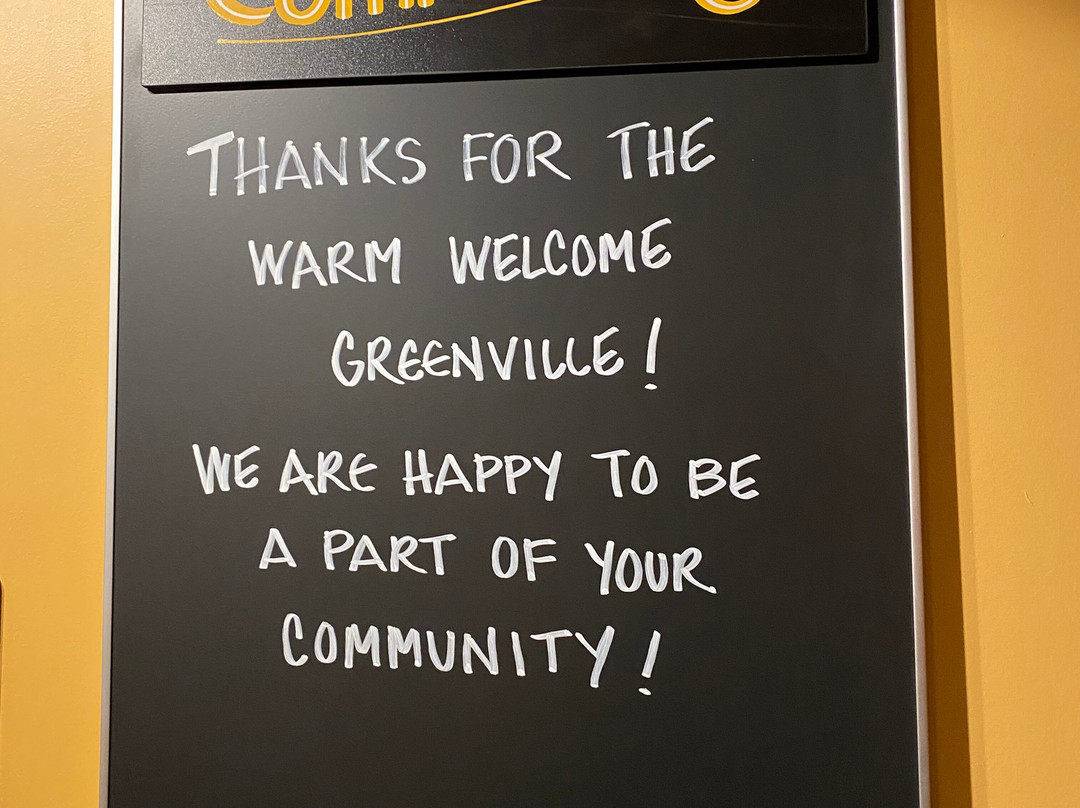 THANKS FOR THE
WARM WELCOME
GREENVILLE!
WE ARE HAPPY TO BE
A PART OF YOUR
COMMUNITY!